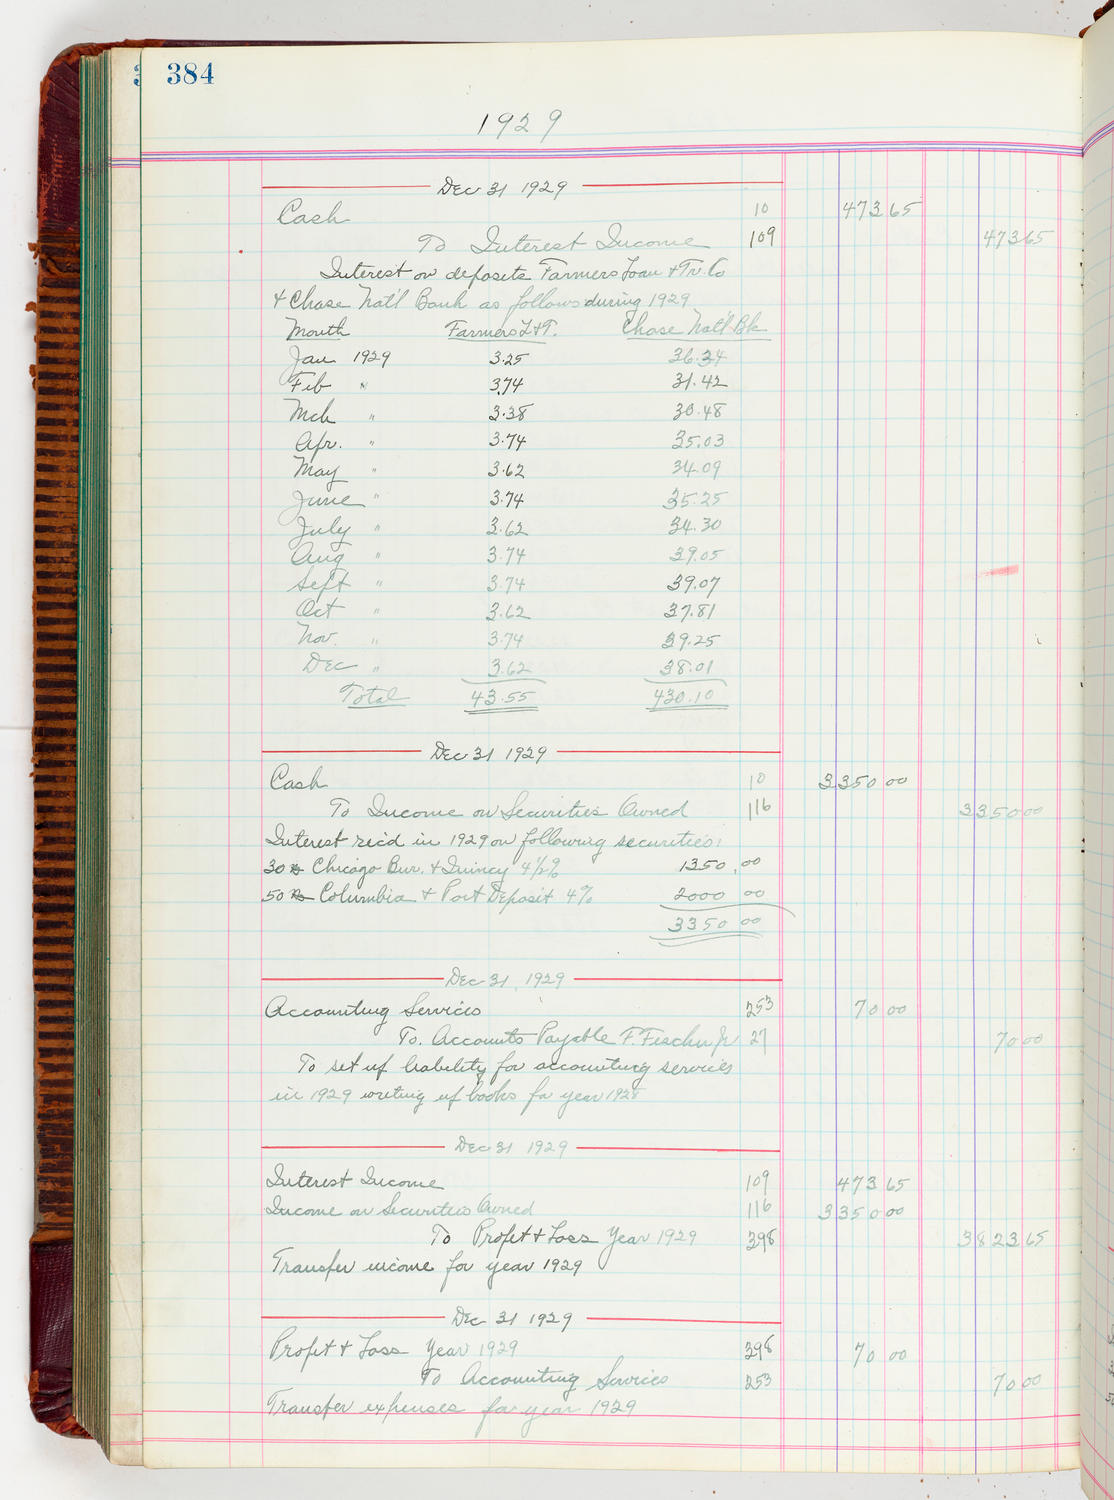 384
1929
Dec 31 1929
Cash 10 473 65
To Interest Income 109 473 65
Interest on deposits Farmers Loan & Tr. Co
& Chase Nat'l Bank as follows during 1929
Month Farmers L & T. Chase Nat'l Bk
Jan 1929 3.25 36.34
Feb " 3.74 31.42
Mch " 3.38 30.48
Apr. " 3.74 35.03
May " 3.62 34.09
June " 3.74 35.25
July " 3.62 34.30
Aug " 3.74 39.05
Sept " 3.74 39.07
Oct " 3.62 37.81
Nov. " 3.74 39.25
Dec " 3.62 38.01
Total 43.55 430.10
Dec 31 1929
Cash 10 3350 00
To Income on Securities Owned 116 3350 00
Interest rec'd in 1929 on following securities:
30 Chicago Bur. & Quincy 4½% 1350.00
50 Columbia & Port Deposit 4% 2000 00
3350 00
Dec 31, 1929
Accounting Services 253 70 00
To. Accounts Payable F. Fischer Jr 27 70 00
To set up liability for accounting services
in 1929 writing up books for year 1928
Dec 31 1929
Interest Income 109 473 65
Income on Securities Owned 116 3350 00
To Profit & Loss Year 1929 398 3823 65
Transfer income for year 1929
Dec 31 1929
Profit & Loss Year 1929 398 70 00
To Accounting Services 253 70 00
Transfer expenses for year 1929